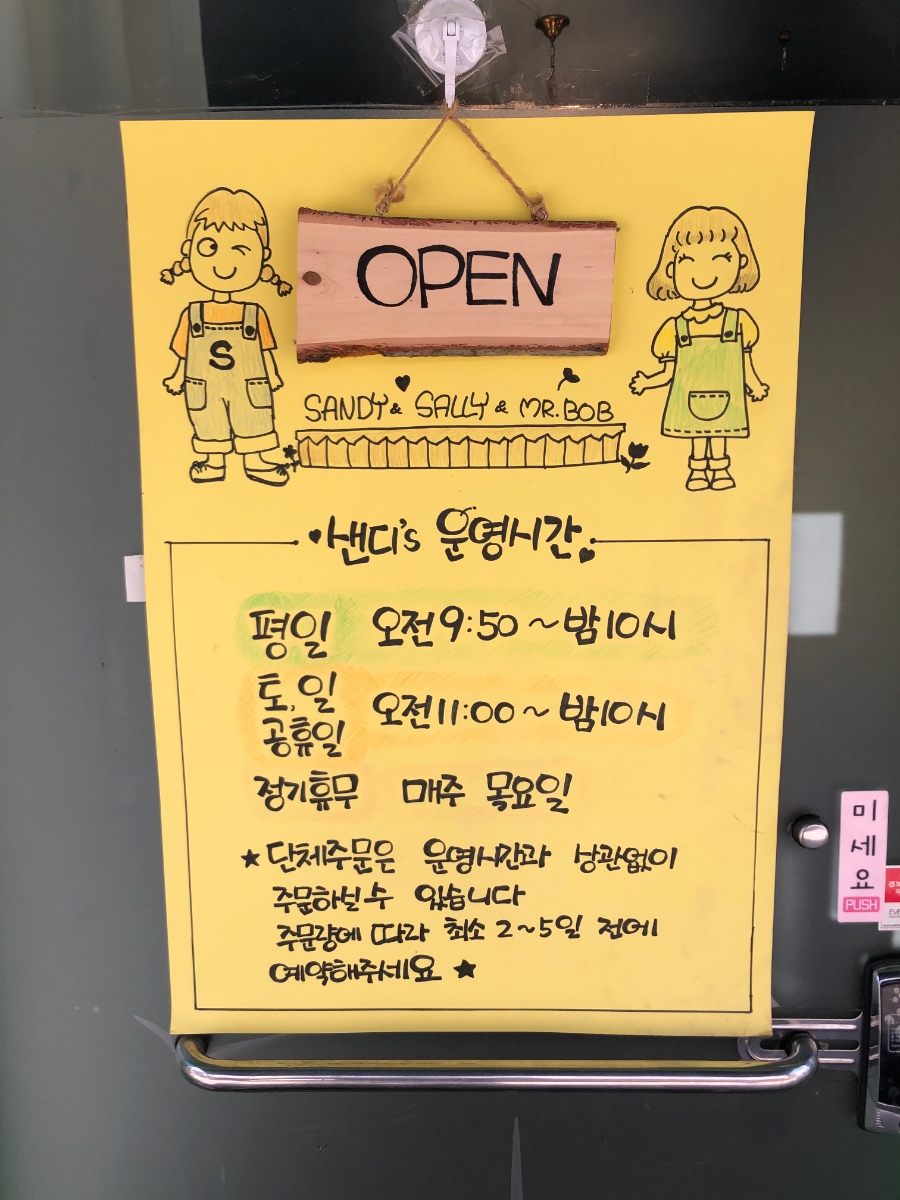 OPEN
S
SANDY & SALLY & MR.BOB
샌디's 운영시간
평일 오전 9:50 ~ 밤 10시
토, 일
공휴일 오전 11:00 ~ 밤 10시
정기휴무 매주 목요일
★ 단체주문은 운영시간과 상관없이
주문하실 수 있습니다
주문량에 따라 최소 2~5일 전에
예약해주세요 ★
미세요
PUSH